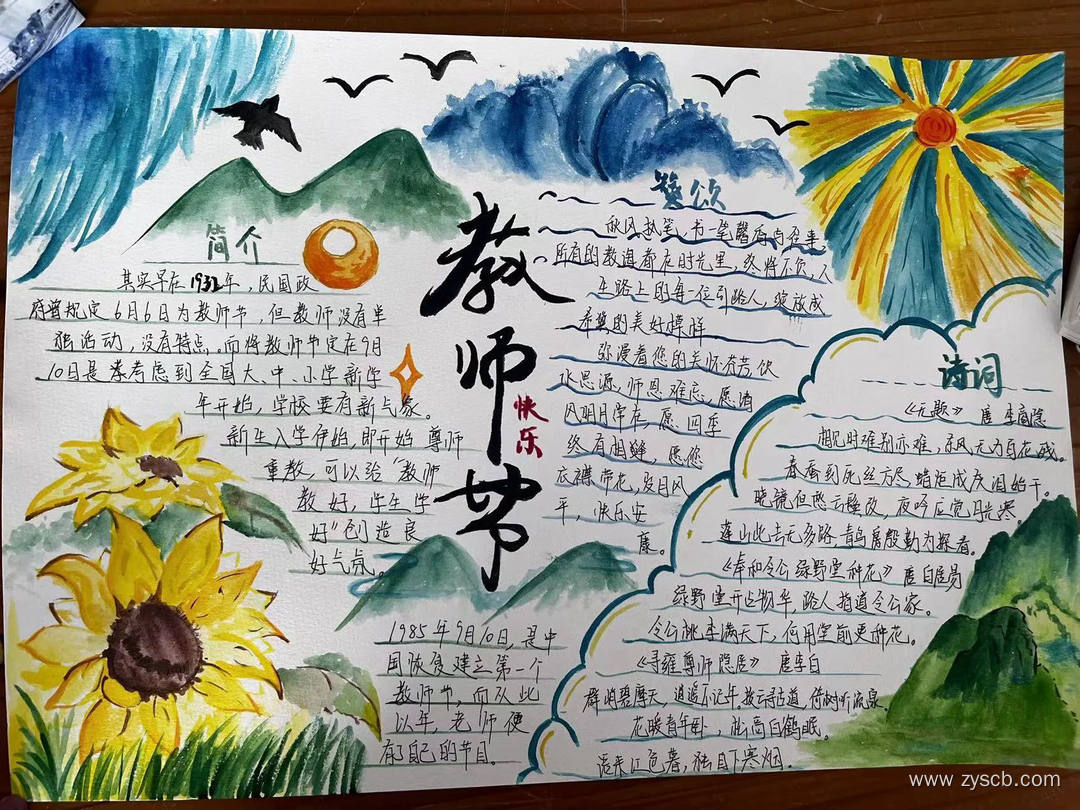 简介
其实早在1932年，民国政
府曾规定6月6日为教师节，但教师没有单
独活动，没有特点。而将教师节定在9月
10日是考虑到全国大、中、小学新学
年开始，学校要有新气象。
新生入学伊始，即开始尊师
重教，可以给“教师
教好，学生学
好”创造良
好气氛。
1985年9月10日，是中
国恢复建立第一个
教师节，而从此
以年，老师便
有自己的节日
教师节
快乐
赞颂
秋风执笔，书一笔馨香向君来，
所有的教道都在时光里，终将不负，人
生路上的每一位引路人，绽放成
希望的美好模样
弥漫着您的关怀芬芳，饮
水思源，师恩难忘，愿清
风明月常在，愿四季
终有相逢，愿您
衣襟带花，岁月风
平，快乐安
康。
诗词
《无题》唐 李商隐
相见时难别亦难，东风无力百花残。
春蚕到死丝方尽，蜡炬成灰泪始干。
晓镜但愁云鬓改，夜吟应觉月光寒。
蓬山此去无多路，青鸟殷勤为探看。
《奉和令公绿野堂种花》唐白居易
绿野堂开占物华，路人指道令公家。
令公桃李满天下，何用堂前更种花。
《寻雍尊师隐居》唐李白
群峭碧摩天，逍遥不记年。拨云寻古道，倚树听流泉。
花暖青牛卧，松高白鹤眠。
语来江色暮，独自下寒烟。
www.zyscb.com